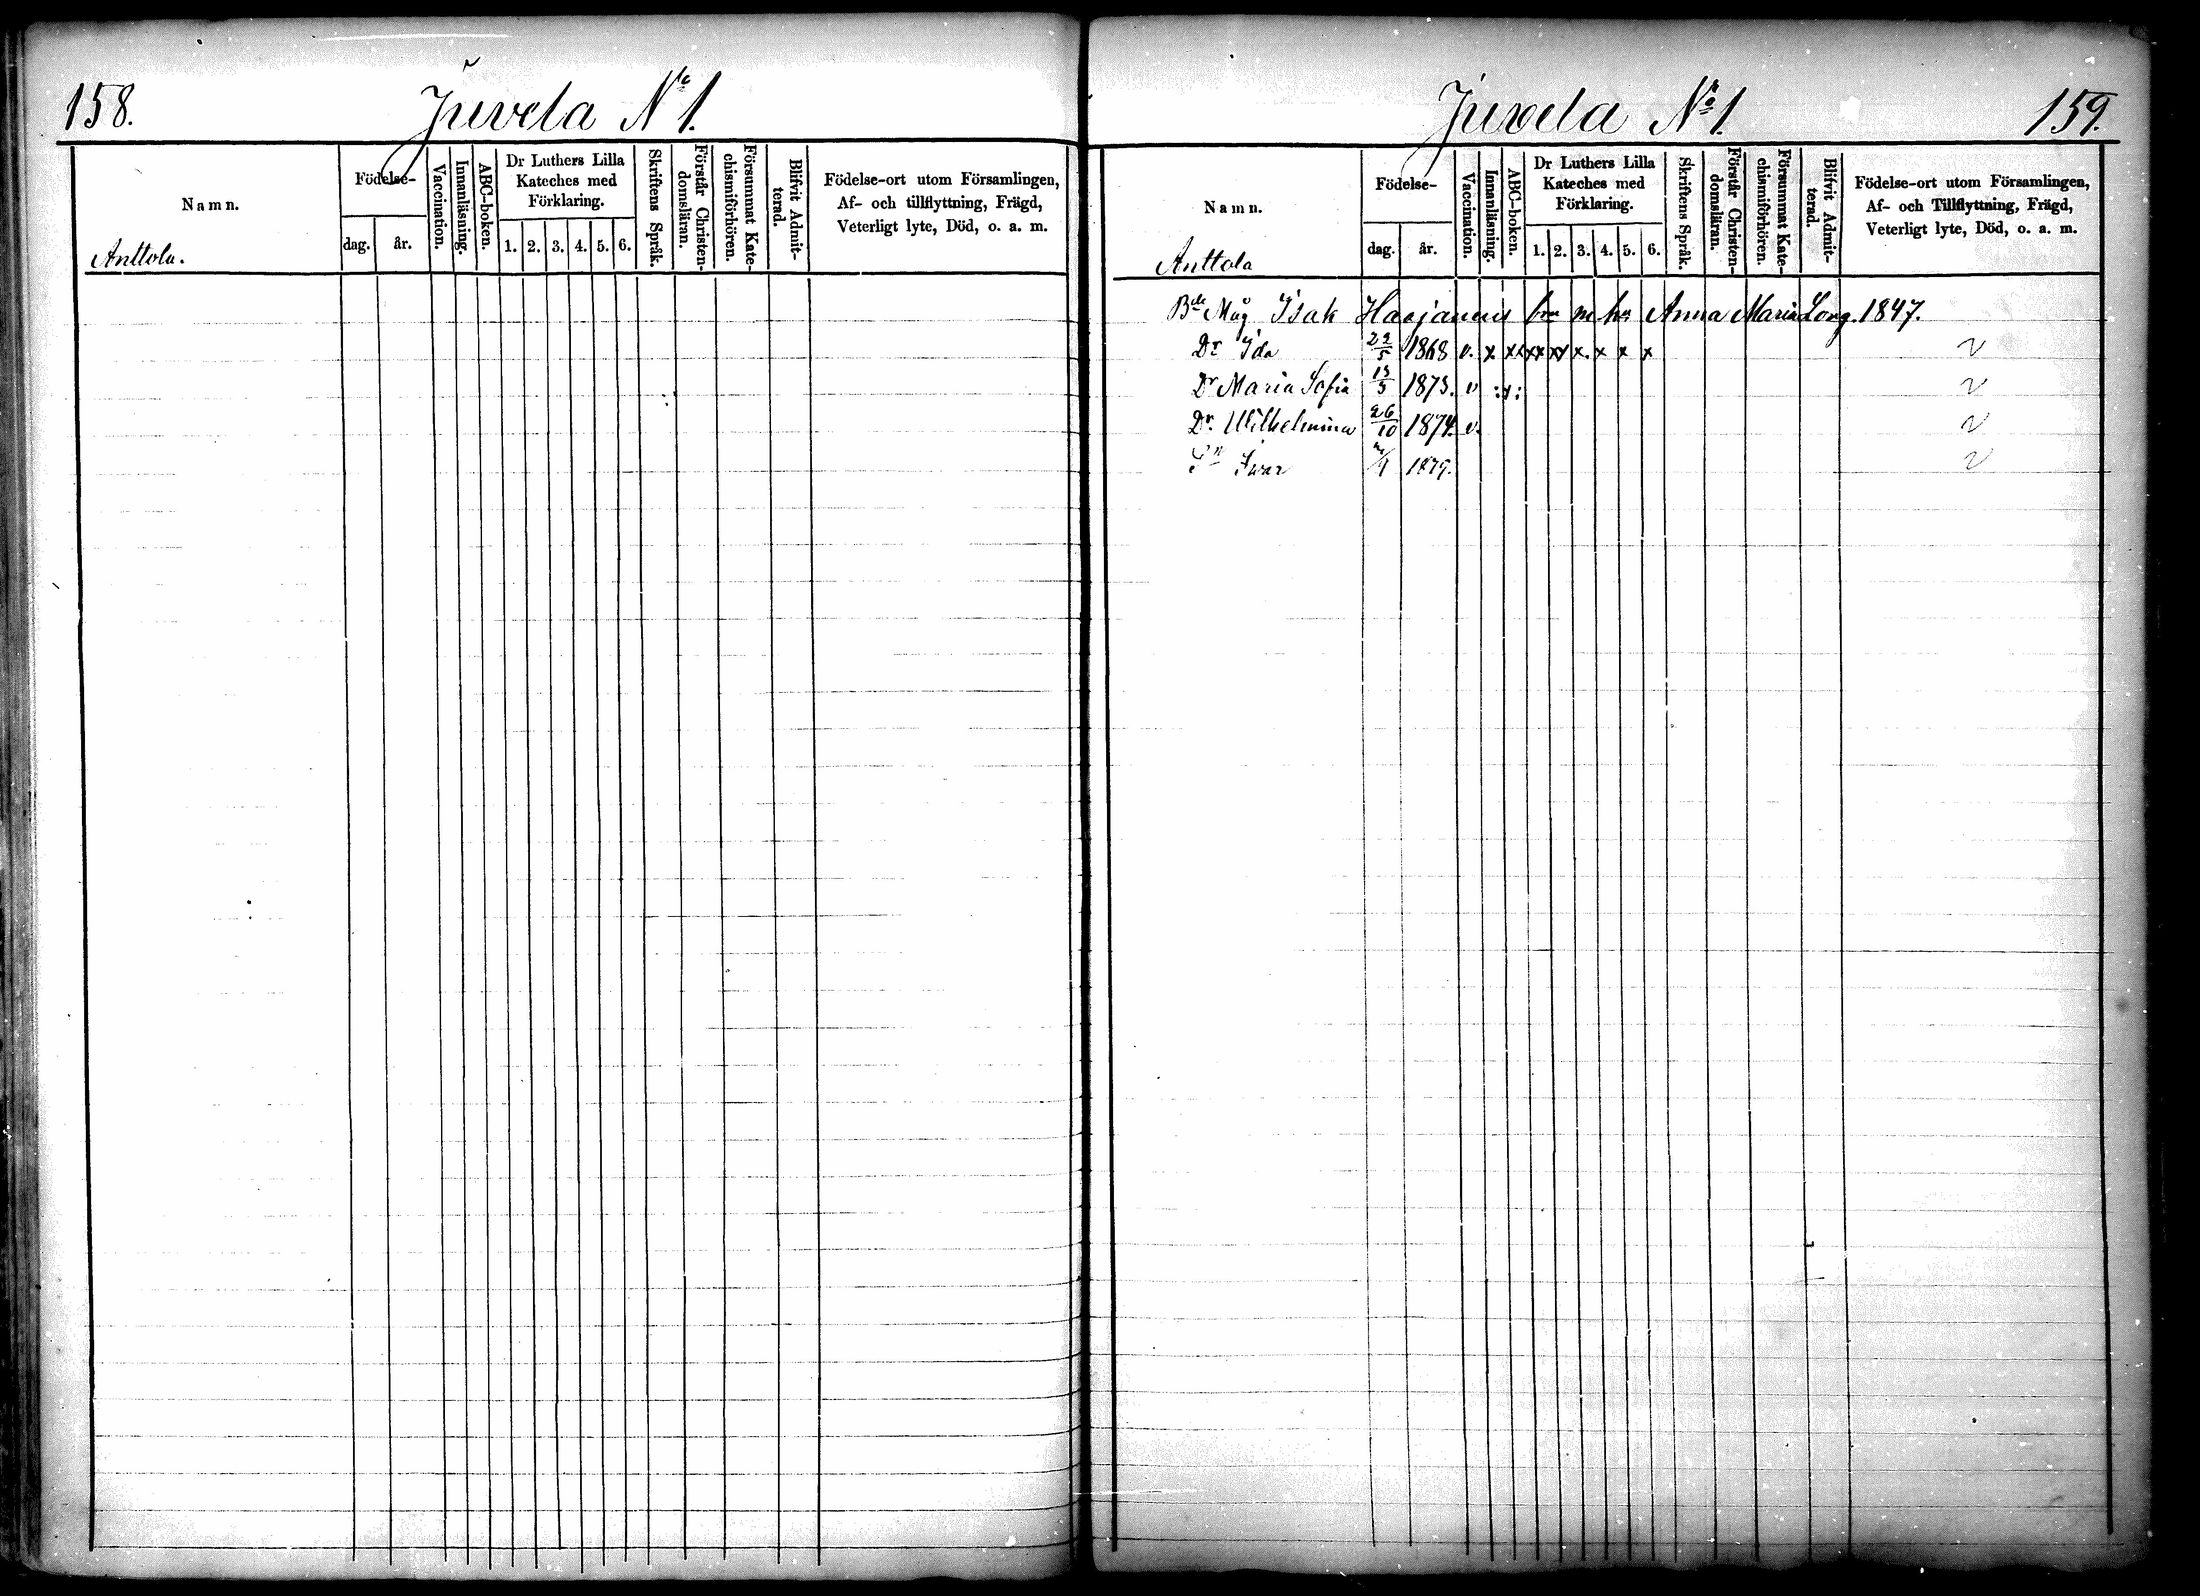 158.
Juvela No 1.
Namn.
Födelse-
dag.
år.
Vaccination.
Innanläsning.
ABC-boken.
Dr Luthers Lilla
Kateches med
Förklaring.
1. 2. 3. 4. 5. 6.
Skriftens Språk.
Förstår Christen-
domsläran.
Försummat Kate-
chismiförhören.
Blifvit Admit-
terad.
Födelse-ort utom Församlingen,
Af- och tillflyttning, Frägd,
Veterligt lyte, Död, o. a. m.
Anttola.
Juvela No 1.
159.
Namn.
Födelse-
dag.
år.
Vaccination.
Innanläsning.
ABC-boken.
Dr Luthers Lilla
Kateches med
Förklaring.
1. 2. 3. 4. 5. 6.
Skriftens Språk.
Förstår Christen-
domsläran.
Försummat Kate-
chismiförhören.
Blifvit Admit-
terad.
Födelse-ort utom Församlingen,
Af- och Tillflyttning, Frägd,
Veterligt lyte, Död, o. a. m.
Anttola
Bde Måg Isak m hu Anna Maria 1847.
Dr Ida 22/5 1868 v. x xx xx xx x. x x x
Dr Maria Sofia 1873. v
Dr. Wilhelmina 26/10 1874. v.
Sn Iwar 1879.